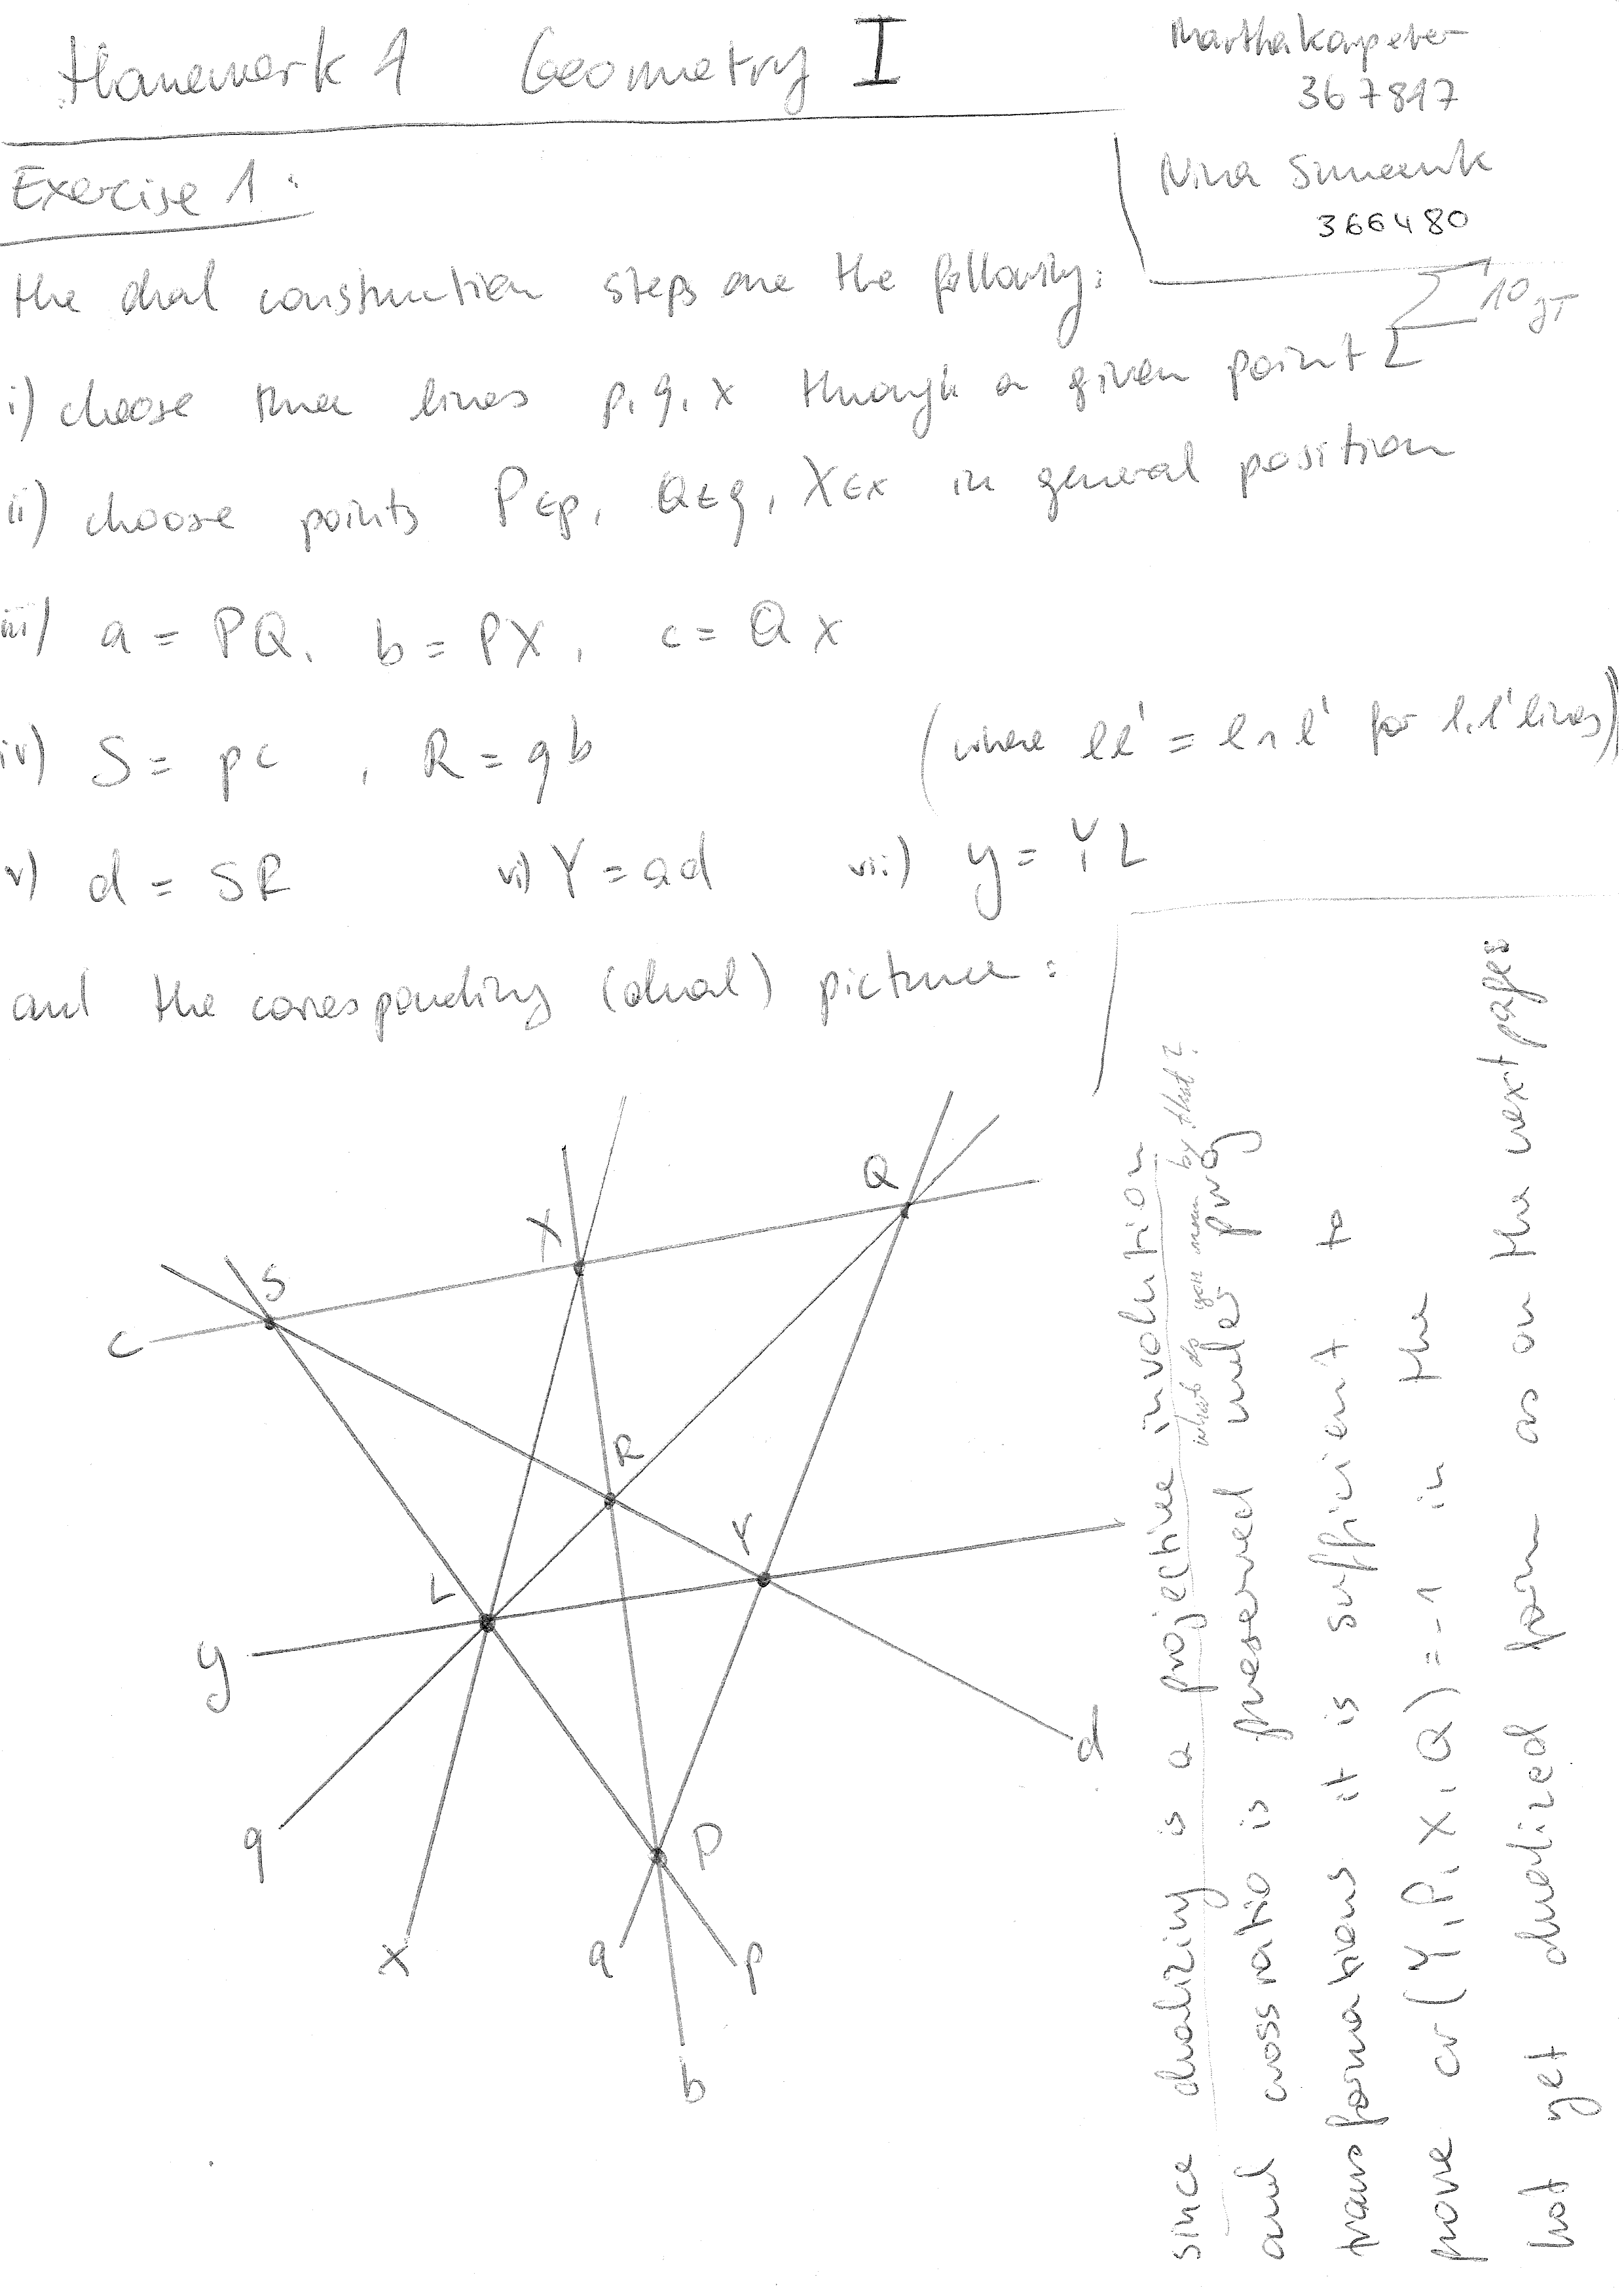 Homework 1 Geometry I
Martha
367817
Nina
366480
Exercise 1:
the dual construction steps are the following:
Σ 10
i) choose three lines p, q, x through a given point L
ii) choose points P∈p, Q∈q, X∈x in general position
iii) a = PQ, b = PX, c = QX
iv) S = pc , R = qb (where ll' = l∩l' for l,l' lines)
v) d = SR vi) Y = ad vii) y = YL
and the corresponding (dual) picture:
X
Q
S
c
R
Y
L
y
d
q
P
x
a
p
b
since dualizing is a projective involution
what do you mean by that?
and cross ratio is preserved under proj
transformations it is sufficient to
prove cr(Y,P,X,Q)=-1 in the
not yet dualized form as on the next pages